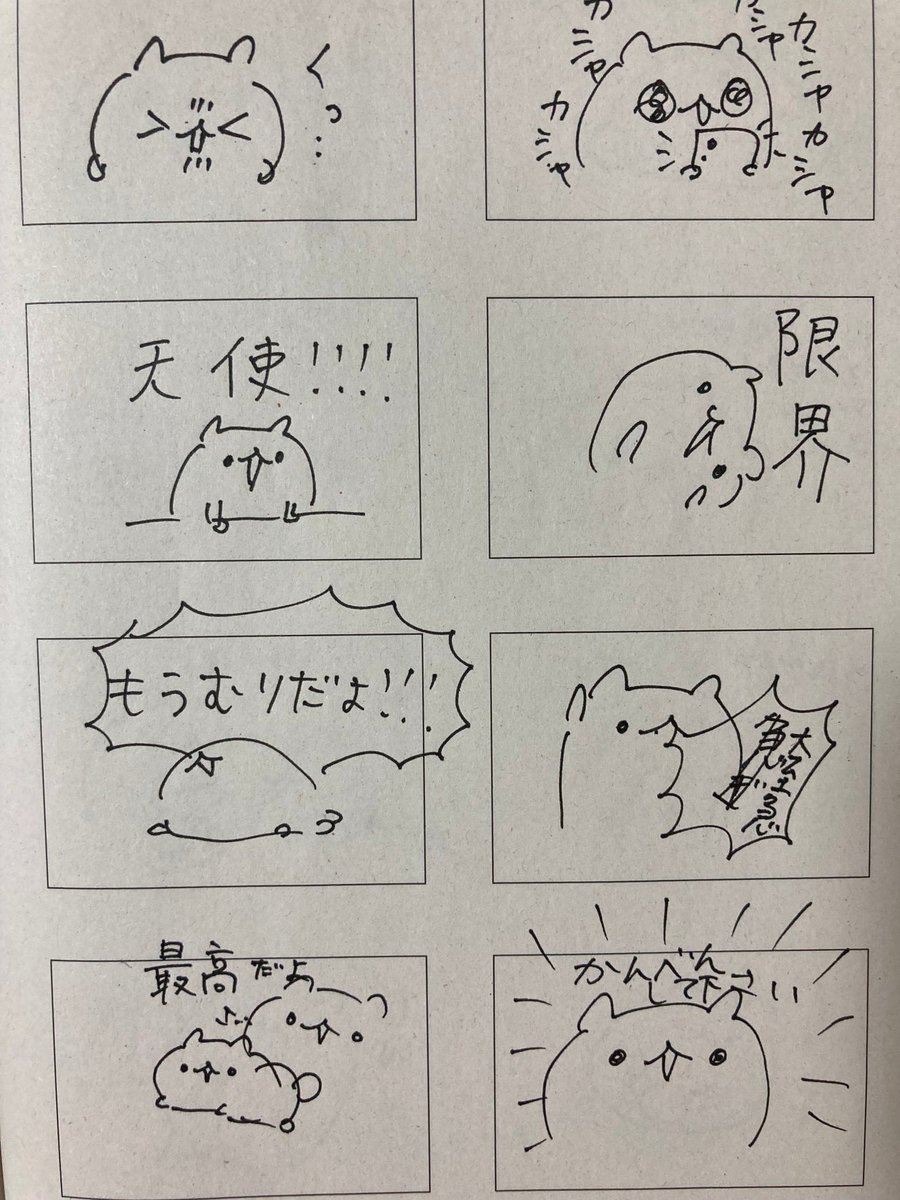 くっ:
カシャ
カシャ
カシャ
カシャ
カシャ
天使!!!!
限界
もうむりだよ!!!
最高だよ
かんべん
して下さい